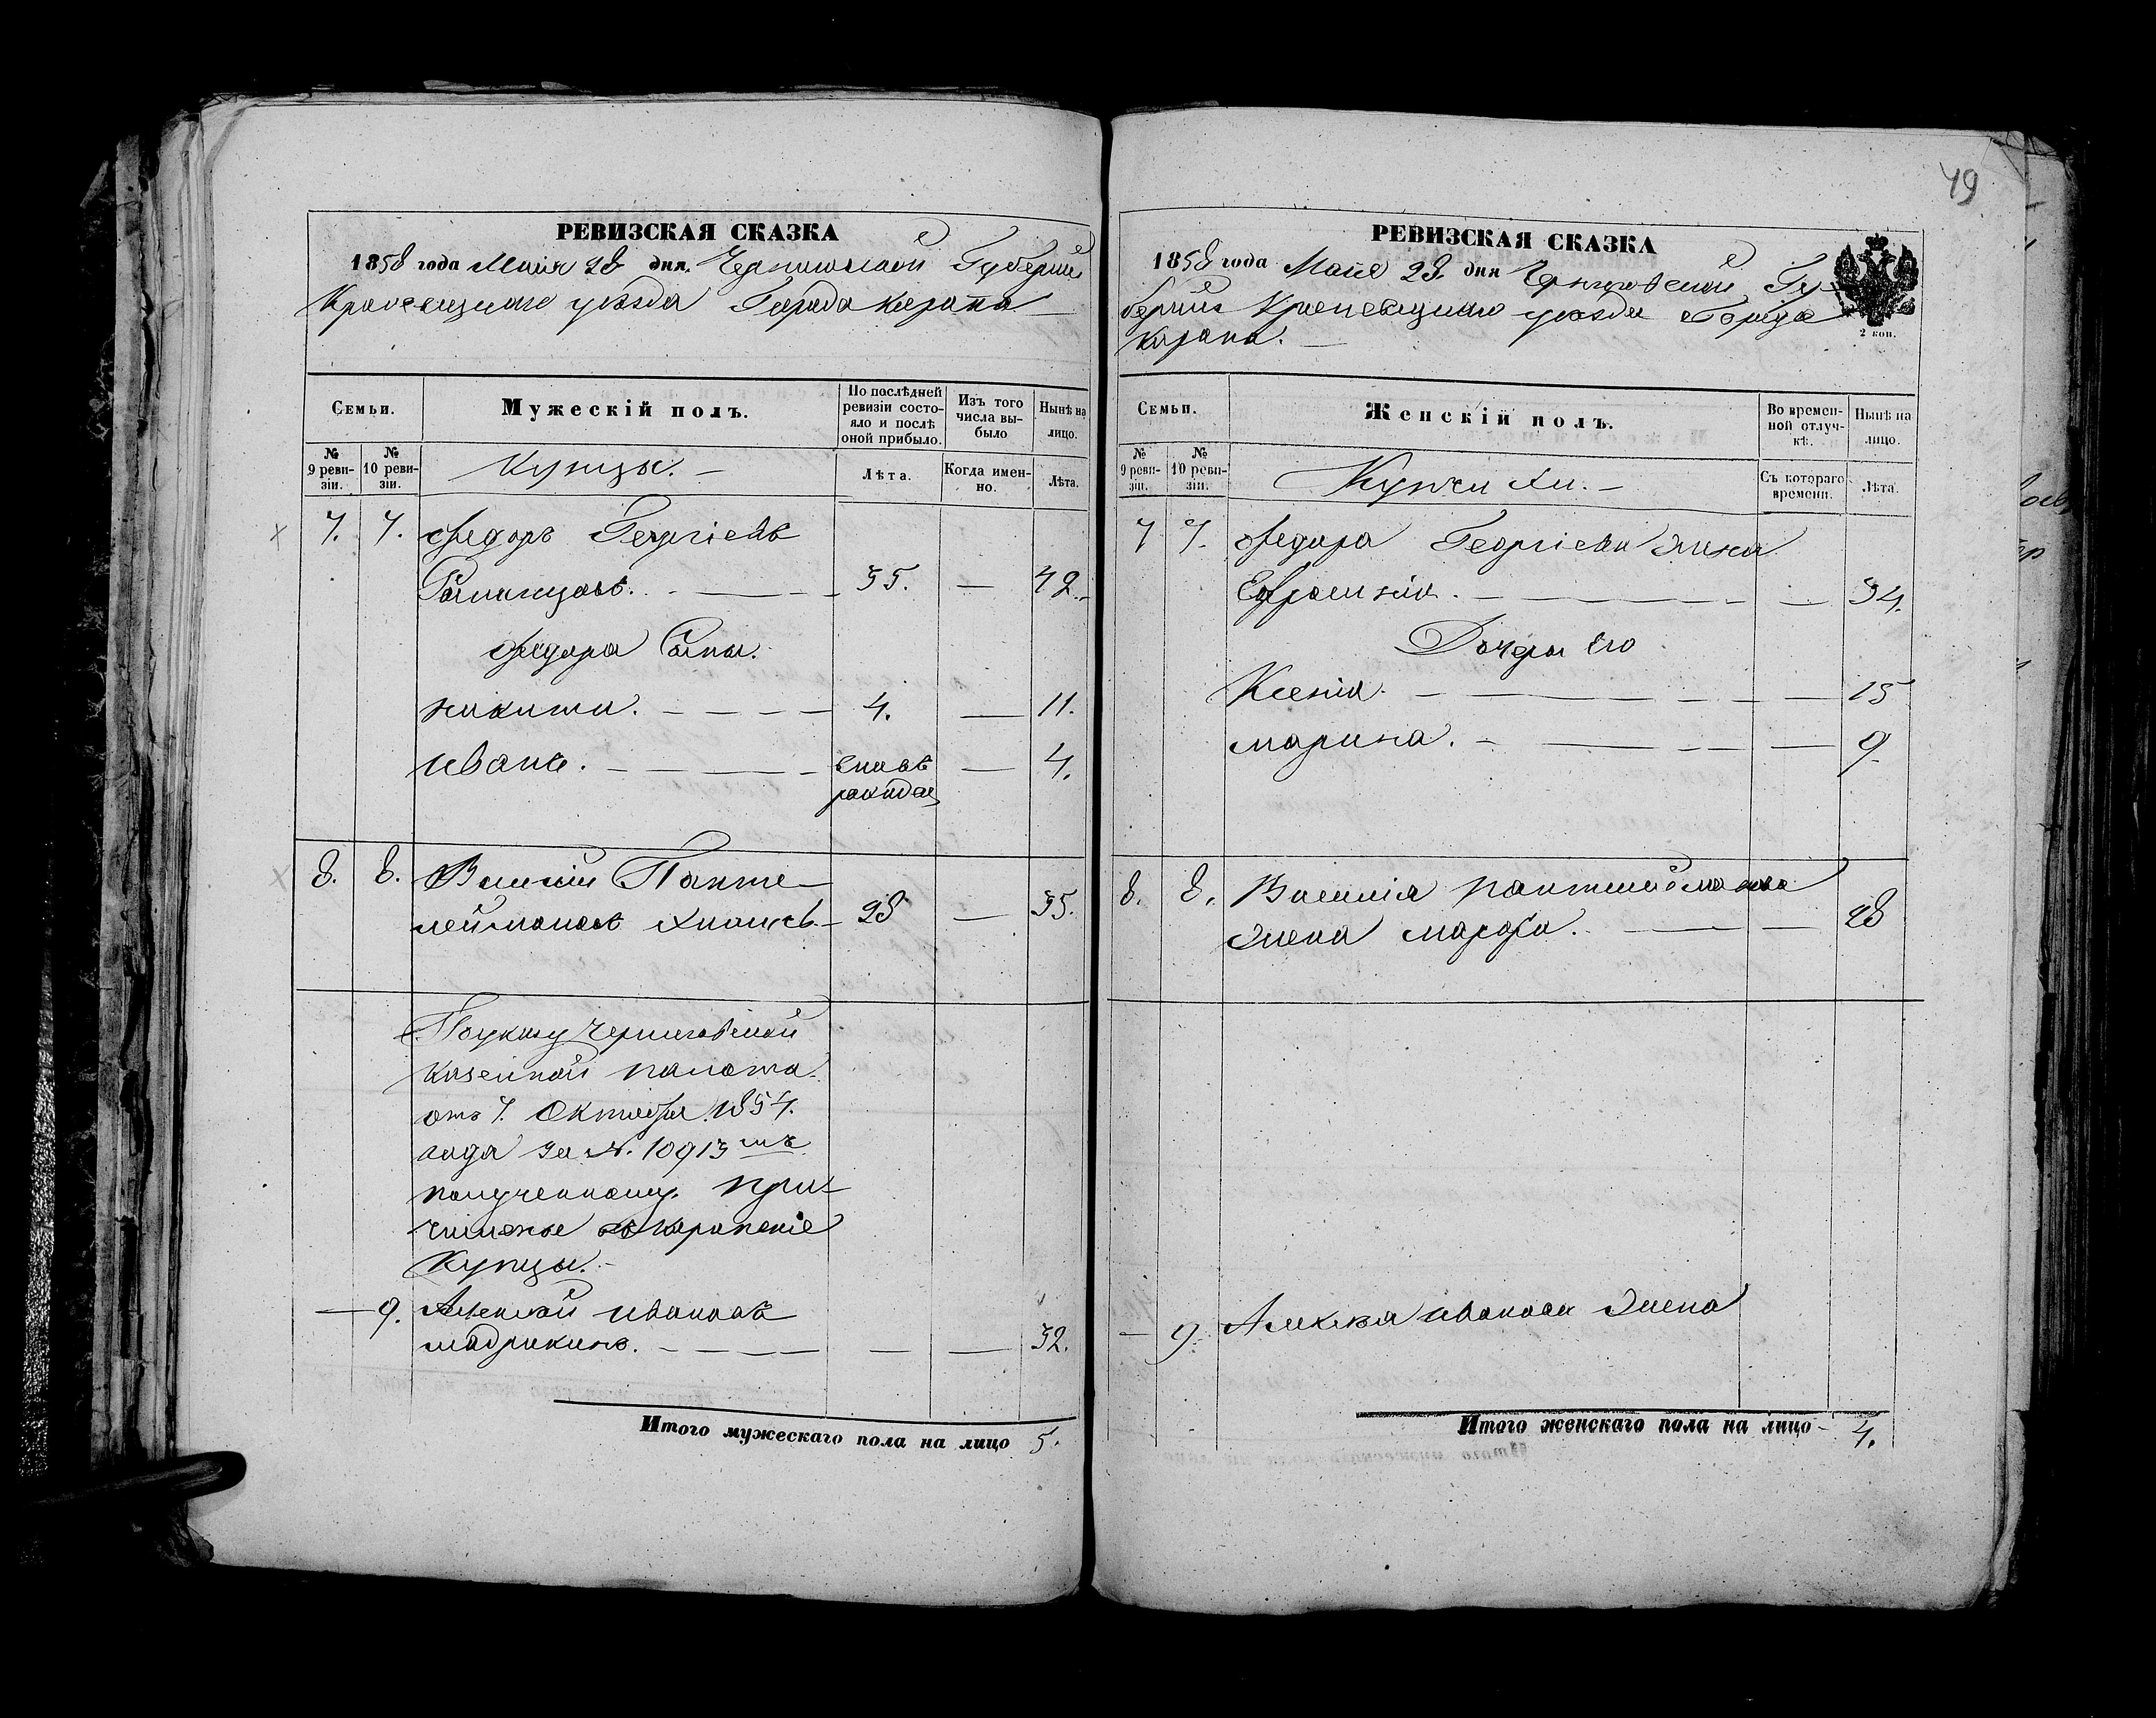 49
РЕВИЗСКАЯ СКАЗКА
1858 года Маия 28 дня. Черниговской Губерніи
Кролевецкаго уѣзда Города Коропа
Семьи.
Мужескій полъ.
По послѣдней ревизіи состояло и послѣ оной прибыло.
Изъ того числа выбыло
Нынѣ на лицо.
№ 9 ревизіи.
№ 10 ревизіи.
Купцы.
Лѣта.
Когда именно.
Лѣта.
7. 7. Федоръ Георгіевъ
35. — 42.
Федора Сыны.
никита. 4. — 11.
иванъ. — 4.
8. 8. Василій Панте-
леймоновъ 28 — 35.
По указу Черниговской
казенной палаты
отъ 7. Октября 1854.
года за №. 10913 мъ
полученному. при-
численые въ Коропскіе
Купцы.
— 9. Алексѣй ивановъ
32.
Итого мужескаго пола на лицо 5.
РЕВИЗСКАЯ СКАЗКА
1858 года Маія 28. дня Черниговской Гу-
берніи Кролевецкаго уѣзда Города
Коропа.
2 коп.
Семьи.
Женскій полъ.
Во временной отлучкѣ.
Нынѣ на лицо.
№ 9 ревизіи.
№ 10 ревизіи.
Купчихи.
Съ котораго времени.
Лѣта.
7 7. Федора Георгіева жена
Ефросинія. — 34.
Дочери Его
Ксенія. — 15
марина. — 9.
8. 8. Василія пантелеймонова
жена марфа. — 28
— 9. Алексѣя иванова жена
Итого женскаго пола на лицо 4.